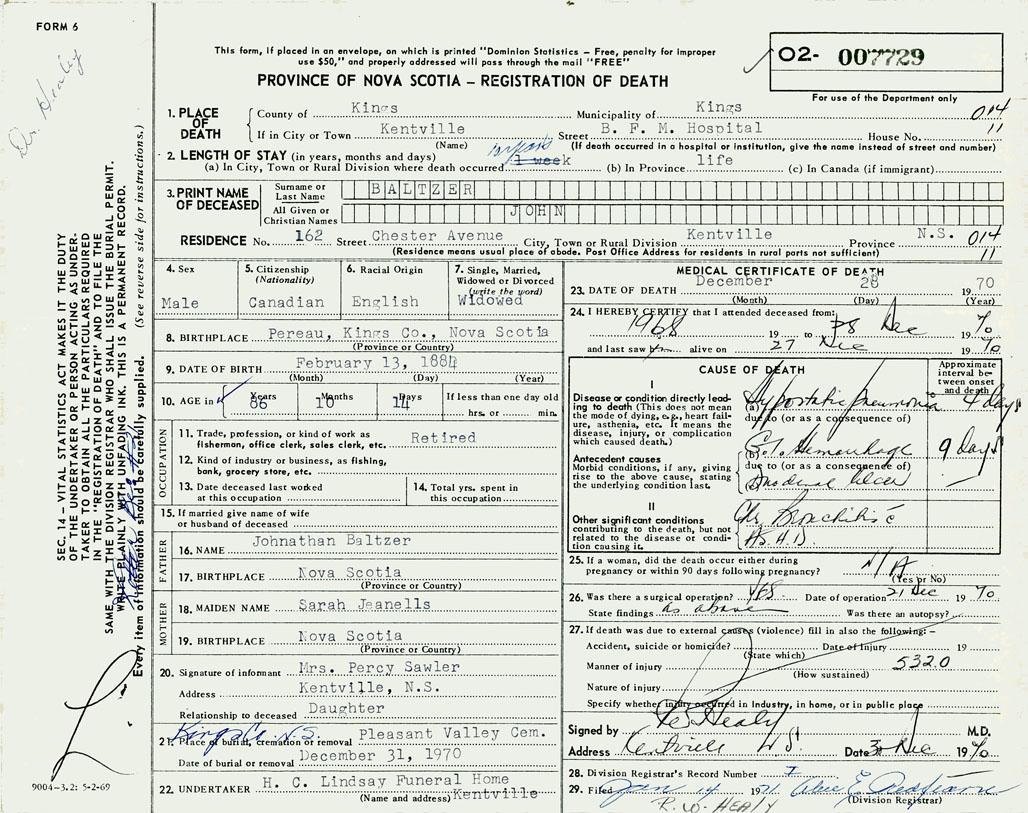 FORM 6
Dr. Healy
This form, if placed in an envelope, on which is printed "Dominion Statistics – Free, penalty for improper
use $50," and properly addressed will pass through the mail "FREE"
PROVINCE OF NOVA SCOTIA – REGISTRATION OF DEATH
02- 007729
For use of the Department only
1. PLACE OF DEATH
County of Kings Municipality of Kings 014
If in City or Town Kentville Street B. F. M. Hospital House No. 11
(Name) (If death occurred in a hospital or institution, give the name instead of street and number)
2. LENGTH OF STAY (in years, months and days)
(a) In City, Town or Rural Division where death occurred 1 week years (b) In Province life (c) In Canada (if immigrant)
3. PRINT NAME OF DECEASED
Surname or Last Name BALTZER
All Given or Christian Names JOHN
RESIDENCE No. 162 Street Chester Avenue City, Town or Rural Division Kentville Province N.S. 014
(Residence means usual place of abode. Post Office Address for residents in rural parts not sufficient) 11
4. Sex Male
5. Citizenship (Nationality) Canadian
6. Racial Origin English
7. Single, Married, Widowed or Divorced (write the word) Widowed
8. BIRTHPLACE Pereau, Kings Co., Nova Scotia
(Province or Country)
9. DATE OF BIRTH February 13, 1884
(Month) (Day) (Year)
10. AGE in Years 86 Months 10 Days 14 If less than one day old
hrs. or min.
OCCUPATION
11. Trade, profession, or kind of work as Retired
fisherman, office clerk, sales clerk, etc.
12. Kind of industry or business, as fishing,
bank, grocery store, etc.
13. Date deceased last worked at this occupation
14. Total yrs. spent in this occupation
15. If married give name of wife
or husband of deceased
FATHER
16. NAME Johnathan Baltzer
17. BIRTHPLACE Nova Scotia
(Province or Country)
MOTHER
18. MAIDEN NAME Sarah Jeanells
19. BIRTHPLACE Nova Scotia
(Province or Country)
20. Signature of informant Mrs. Percy Sawler
Address Kentville, N.S.
Relationship to deceased Daughter
Kings Co. N.S.
21. Place of burial, cremation or removal Pleasant Valley Cem.
Date of burial or removal December 31, 1970
22. UNDERTAKER H. C. Lindsay Funeral Home
(Name and address) Kentville
MEDICAL CERTIFICATE OF DEATH
23. DATE OF DEATH December 28 1970
(Month) (Day) (Year)
24. I HEREBY CERTIFY that I attended deceased from:
1968 19 to 28 Dec 1970
and last saw him alive on 27 Dec 1970
CAUSE OF DEATH
Approximate interval between onset and death
I
Disease or condition directly leading to death (This does not
mean the mode of dying, e.g., heart failure, asthenia, etc. It means the
disease, injury, or complication which caused death.)
(a) Hypostatic pneumonia 4 days
due to (or as a consequence of)
Antecedent causes
Morbid conditions, if any, giving rise to the above cause, stating
the underlying condition last.
(b) G.I. Hemorrhage 9 days
due to (or as a consequence of)
(c) Duodenal Ulcer
II
Other significant conditions
contributing to the death, but not related to the disease or condition causing it.
Chr. Bronchitis c
A.S.H.D.
25. If a woman, did the death occur either during
pregnancy or within 90 days following pregnancy? N/A
(Yes or No)
26. Was there a surgical operation? yes Date of operation 21 Dec 1970
State findings as above Was there an autopsy?
27. If death was due to external causes (violence) fill in also the following: –
Accident, suicide or homicide? Date of Injury 19
(State which)
Manner of injury 5320
(How sustained)
Nature of injury
Specify whether injury occurred in Industry, in home, or in public place
Signed by Healy M.D.
Address Kentville NS Date 30 Dec 1970
28. Division Registrar's Record Number 7
29. Filed Jan 14 1971
(Division Registrar)
R. W. HEALY
SEC. 14 – VITAL STATISTICS ACT MAKES IT THE DUTY
OF THE UNDERTAKER OR PERSON ACTING AS UNDER-
TAKER TO OBTAIN ALL THE PARTICULARS REQUIRED
IN THE "REGISTRATION OF DEATH" AND TO FILE THE
SAME WITH THE DIVISION REGISTRAR WHO SHALL ISSUE THE BURIAL PERMIT.
WRITE PLAINLY WITH UNFADING INK. THIS IS A PERMANENT RECORD.
Every item of information should be carefully supplied. (See reverse side for instructions.)
9004-3.2: 5-2-69